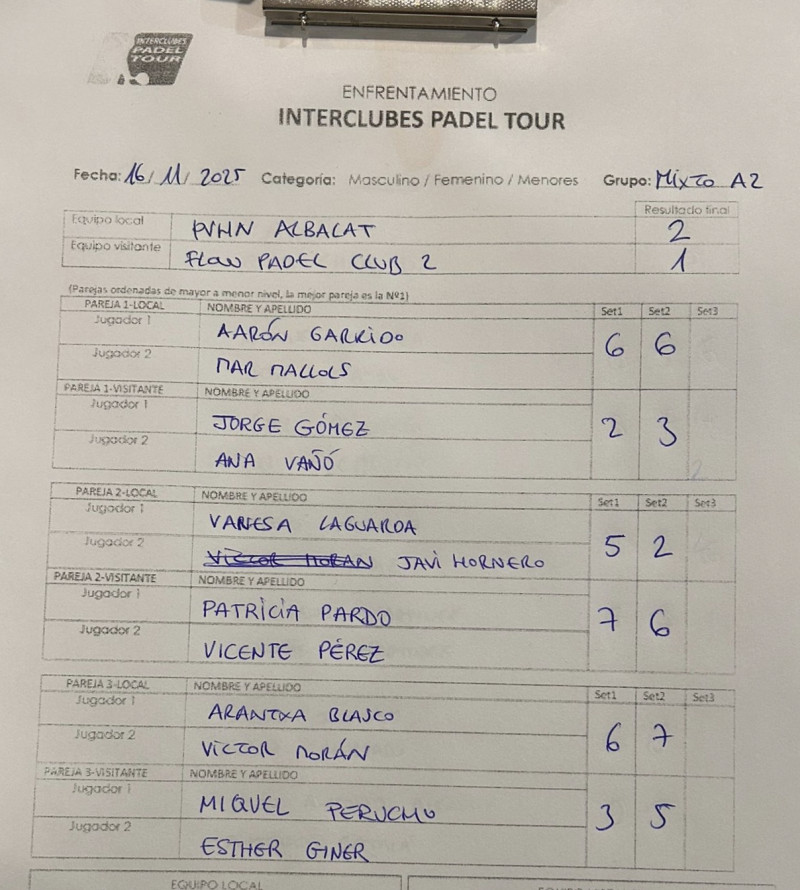 INTERCLUBES
PADEL
TOUR
ENFRENTAMIENTO
INTERCLUBES PADEL TOUR
Fecha: 16/11/2025 Categoría: Masculino / Femenino / Menores Grupo: MIXTO A2
Resultado final
Equipo local PVHN ALBALAT 2
Equipo visitante FLOW PADEL CLUB 2 1
(Parejas ordenadas de mayor a menor nivel, la mejor pareja es la Nº1)
PAREJA 1-LOCAL NOMBRE Y APELLIDO Set1 Set2 Set3
Jugador 1 AARÓN GARRIDO 6 6
Jugador 2 MAR MALLOLS
PAREJA 1-VISITANTE NOMBRE Y APELLIDO
Jugador 1 JORGE GÓMEZ 2 3
Jugador 2 ANA VAÑÓ
PAREJA 2-LOCAL NOMBRE Y APELLIDO Set1 Set2 Set3
Jugador 1 VANESA LAGUARDA 5 2
Jugador 2 VICTOR MORAN JAVI HORNERO
PAREJA 2-VISITANTE NOMBRE Y APELLIDO
Jugador 1 PATRICIA PARDO 7 6
Jugador 2 VICENTE PÉREZ
PAREJA 3-LOCAL NOMBRE Y APELLIDO Set1 Set2 Set3
Jugador 1 ARANTXA BLASCO 6 7
Jugador 2 VICTOR MORÁN
PAREJA 3-VISITANTE NOMBRE Y APELLIDO
Jugador 1 MIQUEL PERUCHO 3 5
Jugador 2 ESTHER GINER
EQUIPO LOCAL